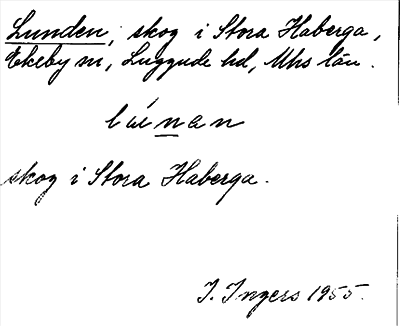 Lunden, skog i Stora Haberga,
Ekeby sn, Luggude hd, Mhs län.
lúnan
skog i Stora Haberga.
I. Ingers 1955.